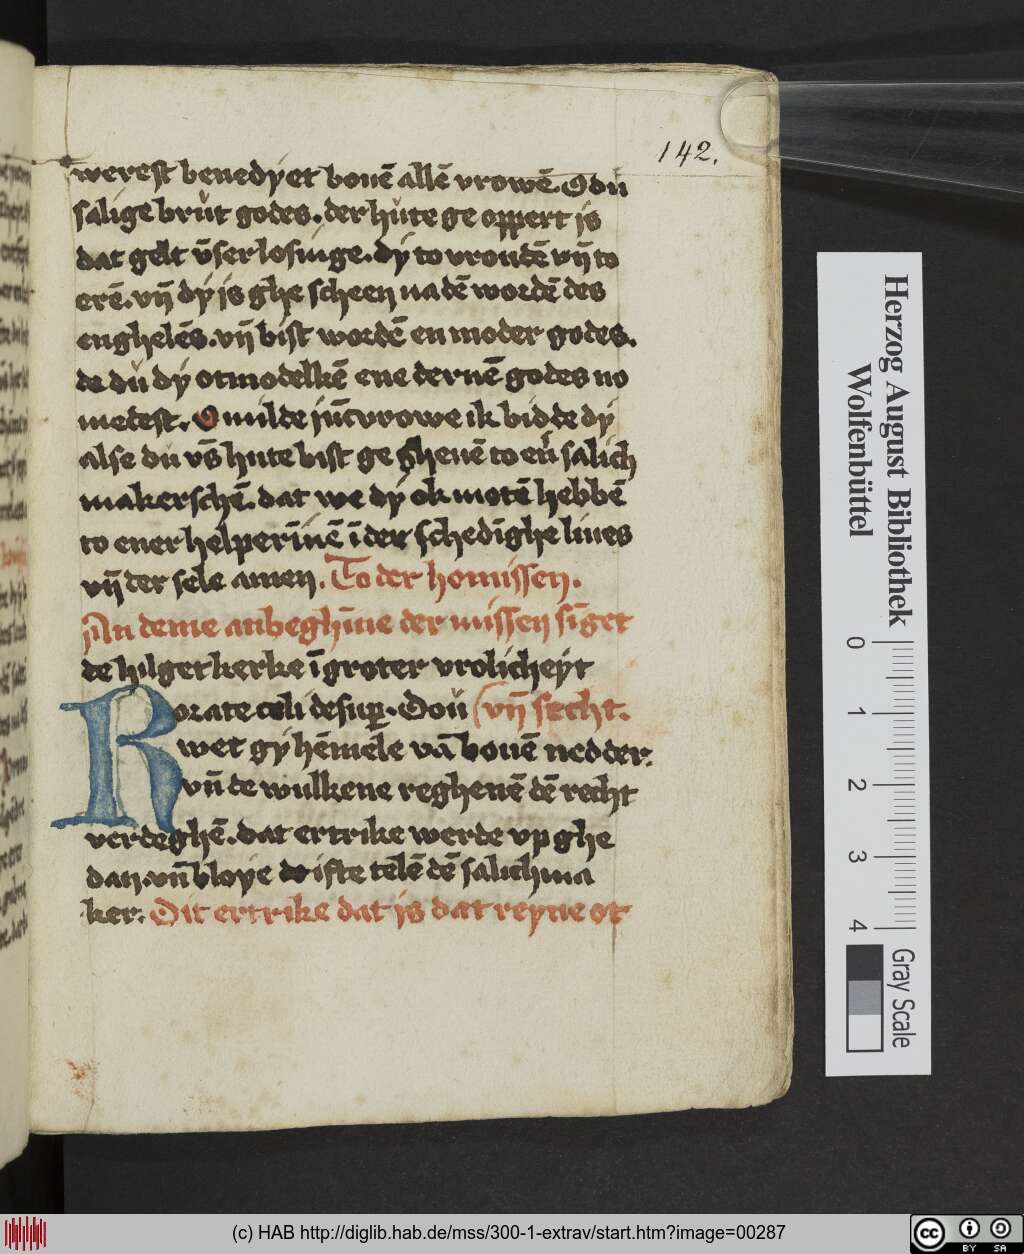 142.
werest benedyet bouē allē vrowē. O du
salige brůt godes. der hůte ge oppert is
dat gelt v̄ser losinge. dy to vroudē vn̄ to
erē. vn̄ dy is ghe scheen na dē wordē des
enghelēs. vn̄ bist wordē en moder godes.
de du dy otmodelkē ene dernē godes no
metest. O milde jūcvrowe ik bidde dy
alse du v̄s hute bist ge gheuē to eň salich
makerschē. dat we dy ok motē hebbē
to ener helperīnē ī der schedīghe liues
vn̄ der sele amen. To der homissen.
An deme anbeghīne der missen sīget
de hilget kerke ī groter vrolicheyt
Rorate celi desup̱. Dou (vn̄ secht.
wet gy hēmele vā bouē nedder.
vn̄ de wulkene reghenē dē recht
verdeghē. dat ertrike werde vp ghe
dan. vn̄ bloye de ifte telē dē salichma
ker. Dit ertrike dat is dat reyne ot
Herzog August Bibliothek
Wolfenbüttel
0 1 2 3 4
Gray Scale
(c) HAB http://diglib.hab.de/mss/300-1-extrav/start.htm?image=00287
cc BY SA